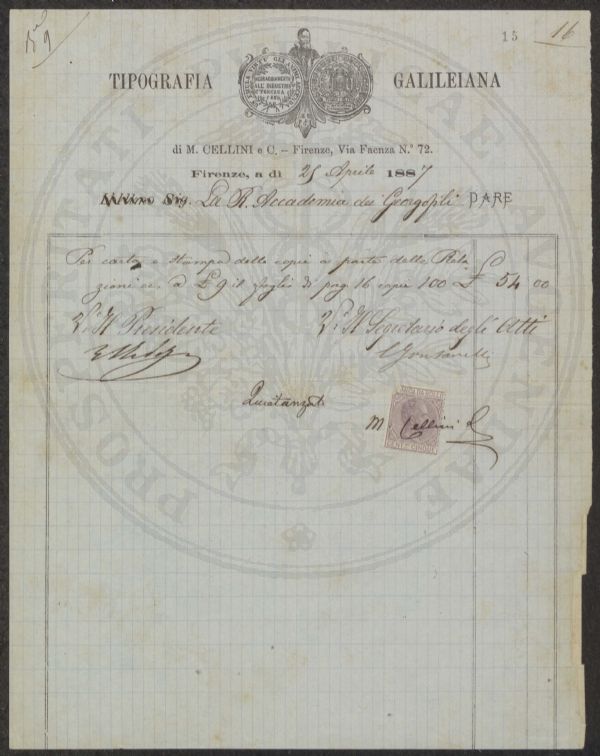 15 16
TIPOGRAFIA GALILEIANA
di M. CELLINI e C. – Firenze, Via Faenza N.° 72.
Firenze, a dì 25 Aprile 1887
Sig. La R. Accademia dei Georgofili DARE
Per carta e stampa delle copie a parte della Rela
zioni ec. a £ 9 il foglio di pag 16 copie 100 £ 54 00
V.° Il Presidente V.° Il Segretario degli Atti
Quietanzata
M. Cellini
PROSPERITATI PUBLICAE AUGENDAE